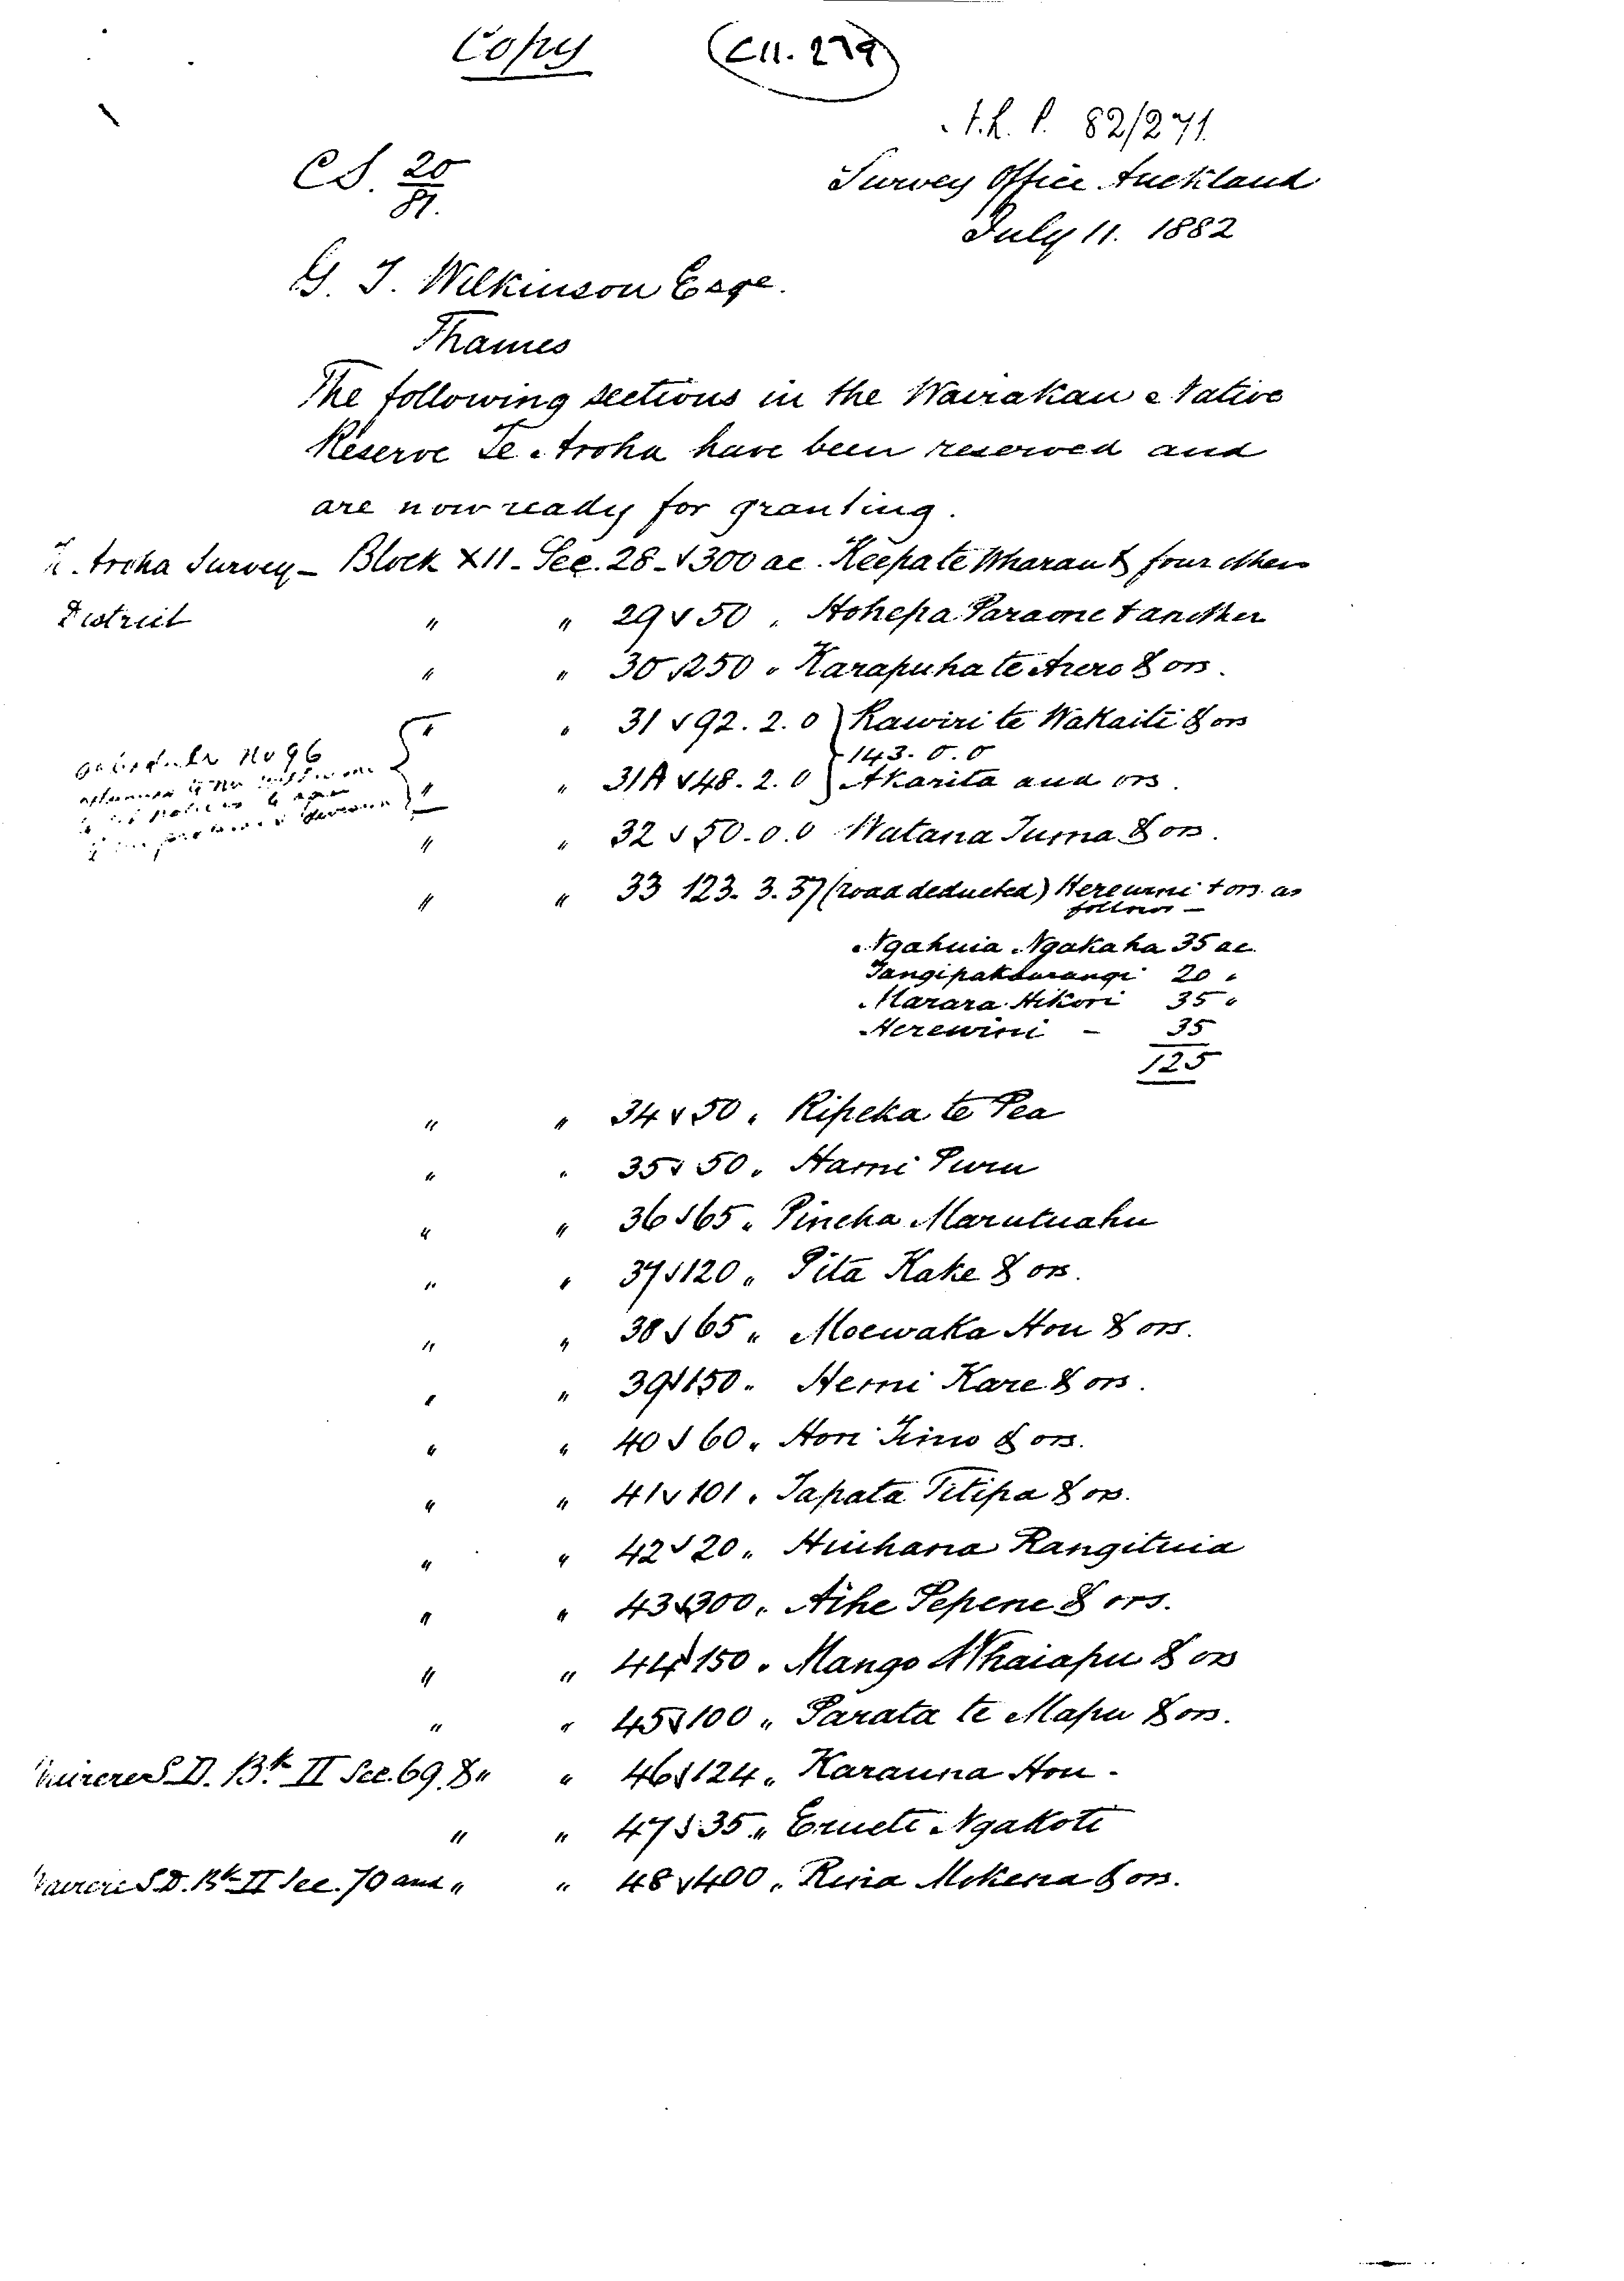 Copy (C11. 279)
82/271.
CS. 20/81.
Survey Office Auckland
July 11. 1882
G. T. Wilkinson Esqe.
Thames
The following sections in the Wairakau Native
Reserve Te Aroha have been reserved and
are now ready for granting.
Te Aroha Survey – Block XII – Sec. 28 – √ 300 ac. Keepa te Wharau & four others
District " " 29 √ 50 " Hohepa Paraone & another
" " 30 √ 250 " Karapuha te Arero & ors.
" " 31 √ 92. 2. 0 } Rawiri te Wakaiti & ors
No 96
143. 0. 0
" " 31A √ 48. 2. 0 } Akarita and ors.
" " 32 √ 50. 0. 0 Watana Tuma & ors.
" " 33 123. 3. 37 (road deducted) Herewini & ors. as
follows –
Ngahuia Ngakaha 35 ac.
20 "
Marara Hikori 35 "
Herewini – 35
125
" " 34 √ 50 " Ripeka te Pea
" " 35 √ 50 " Hami Puru
" " 36 √ 65 " Pineha Marutuahu
" " 37 √ 120 " Pita Kake & ors.
" " 38 √ 65 " Moewaka Hou & ors.
" " 39 √ 150 " Hemi Kare & ors.
" " 40 √ 60 " Hori Kino & ors.
" " 41 √ 101 " Tapata Titipa & ors.
" " 42 √ 20 " Huihana Rangituia
" " 43 √ 300 " Aihe Pepene & ors.
" " 44 √ 150 " Mango Whaiapu & ors
" " 45 √ 100 " Parata te Mapu & ors.
Wairere S.D. Bk II Sec. 69 & " " 46 √ 124 " Karauna Hou -
" " 47 √ 35 " Erueti Ngakoti
Wairere S.D. Bk II Sec. 70 and " " 48 √ 400 " Riria Mokena & ors.